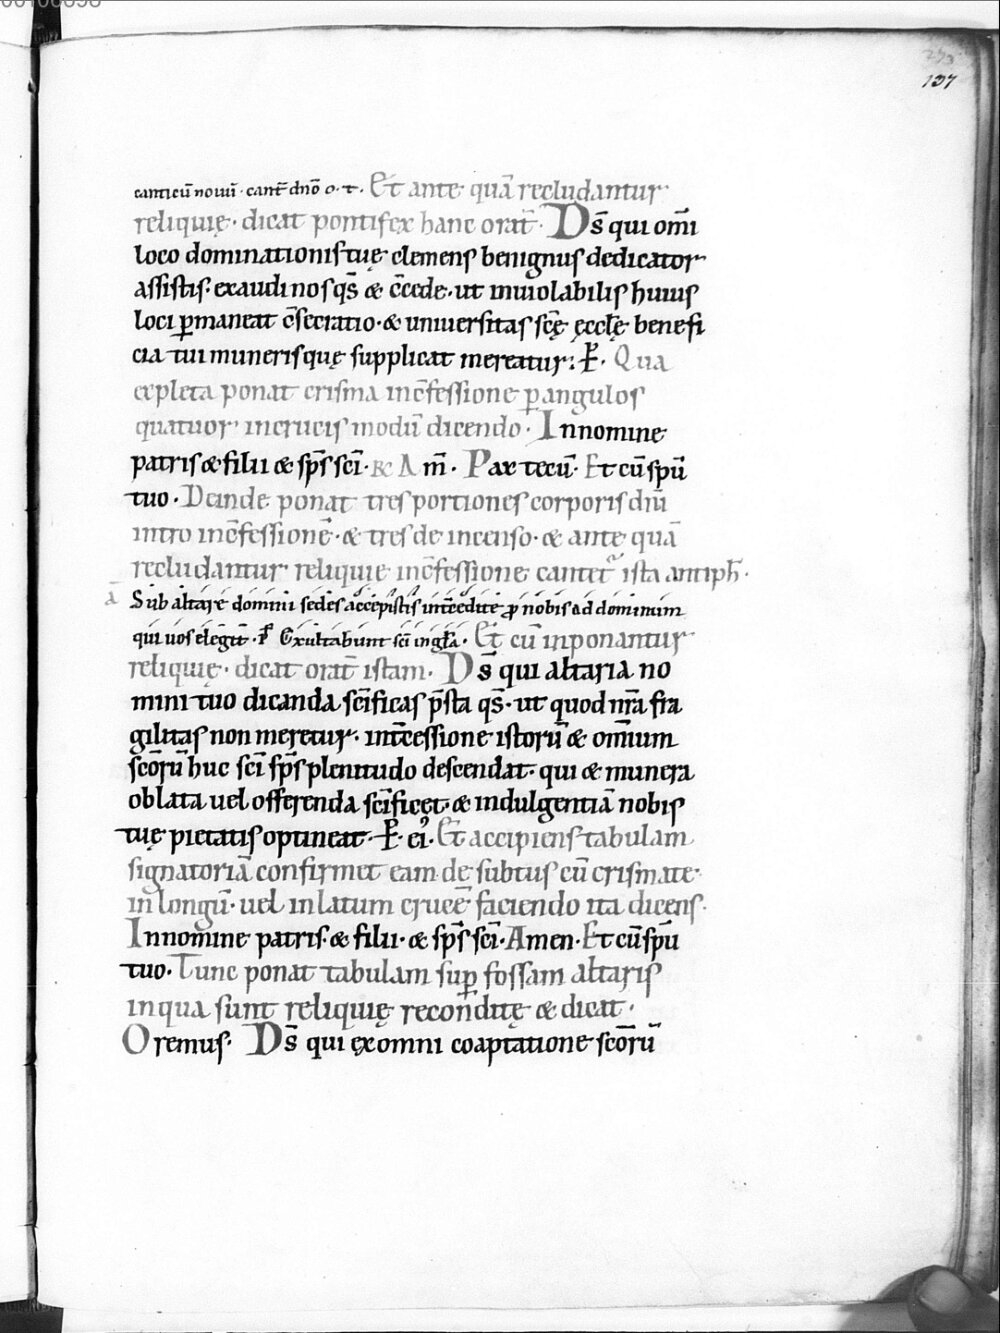 137
canticū nouū · cant̄ dn̄o o · t · Et ante quā recludantur
reliquię · dicat pontifex hanc orat̄ · Ds̄ qui om̄i
loco dominationis tuę clemens benignus dedicator
assistis · exaudi nos qs̄ & c̄cede · ut inuiolabilis huius
loci ꝑmaneat c̄secratio · & uniuersitas scę̄ ęcclę̄ benefi
cia tui muneris quę supplicat mereatur : P̄ · Qua
expleta ponat crisma in c̄fessione ꝑ angulos
quatuor in crucis modū dicendo · In nomine
patris & filii & sp̄s sc̄i · R Am̄ · Pax tecū · Et cū sp̄u
tuo · Deinde ponat tres portiones corporis dn̄i
intro in c̄fessionē · & tres de incenso · & ante quā
recludantur reliquię in c̄fessione cantet᷑ ista antiph̄ ·
ā Sub altare domini sedes accepistis intercedite ꝓ nobis ad dominum
qui uos elegit · P̄ Exultabunt sc̄i in gl̄a · Et cū inponantur
reliquię · dicat orat̄ istam · Ds̄ qui altaria no
mini tuo dicanda sc̄ificas p̄sta qs̄ · ut quod nr̄a fra
gilitas non meretur · int̄cessione istorū & omīum
sc̄orū huc sc̄i sp̄s plenitudo descendat · qui & munera
oblata uel offerenda sc̄ificet · & indulgentiā nobis
tuę pietatis optineat · P̄ ei · Et accipiens tabulam
signatoriā confirmet eam de subtus cū crismate ·
in longū · uel in latum crucē faciendo ita dicens ·
In nomine patris · & filii · & sp̄s sc̄i · Amen · Et cū sp̄u
tuo · Tunc ponat tabulam suꝑ fossam altaris
in qua sunt reliquię reconditę & dicat ·
Oremus · Ds̄ qui ex omni coaptatione sc̄orū